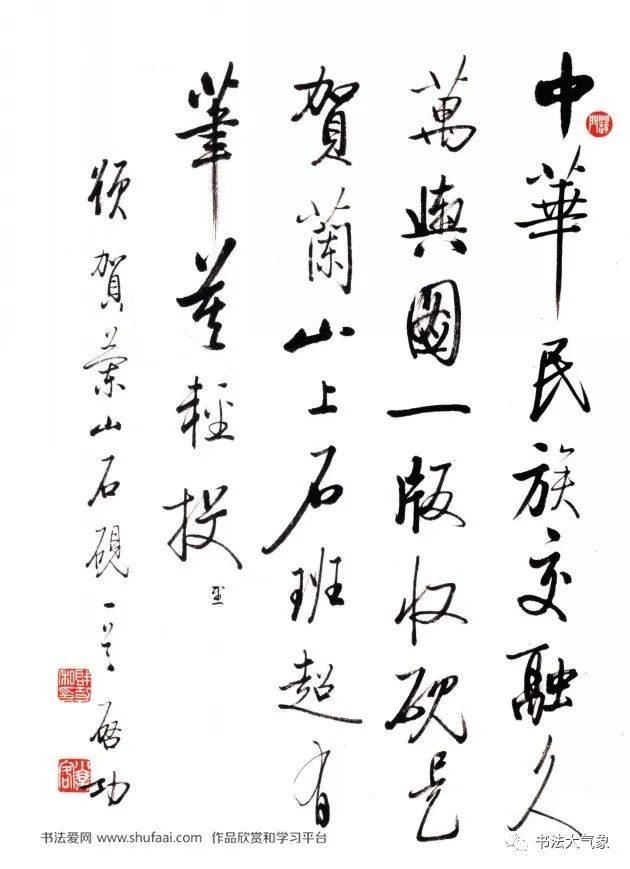 中華民族交融久
萬輿圖一版收硯是
賀蘭山上石班超有
筆莫輕投 里
頌賀蘭山石硯一首 启功
书法爱网 www.shufaai.com 作品欣赏和学习平台
书法大气象